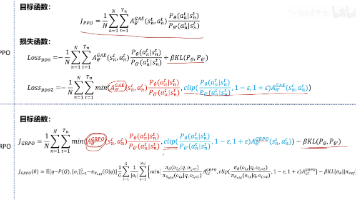 目标函数:
PPO
J_{PPO} = \frac{1}{N}\sum_{n=1}^{N}\sum_{t=1}^{T_n} A_{θ'}^{GAE}(s_n^t, a_n^t) \frac{P_θ(a_n^t|s_n^t)}{P_{θ'}(a_n^t|s_n^t)}
损失函数:
Loss_{ppo} = -\frac{1}{N}\sum_{n=1}^{N}\sum_{t=1}^{T_n} A_{θ'}^{GAE}(s_n^t, a_n^t) \frac{P_θ(a_n^t|s_n^t)}{P_{θ'}(a_n^t|s_n^t)} + βKL(P_θ, P_{θ'})
Loss_{ppo2} = -\frac{1}{N}\sum_{n=1}^{N}\sum_{t=1}^{T_n} min(A_{θ'}^{GAE}(s_n^t, a_n^t) \frac{P_θ(a_n^t|s_n^t)}{P_{θ'}(a_n^t|s_n^t)}, clip(\frac{P_θ(a_n^t|s_n^t)}{P_{θ'}(a_n^t|s_n^t)}, 1 - ε, 1 + ε)A_{θ'}^{GAE}(s_n^t, a_n^t))
目标函数:
RPO
J_{GRPO} = \frac{1}{N}\sum_{n=1}^{N}\sum_{t=1}^{T_n} min(A_{θ'}^{GRPO}(s_n^t, a_n^t) \frac{P_θ(a_n^t|s_n^t)}{P_{θ'}(a_n^t|s_n^t)}, clip(\frac{P_θ(a_n^t|s_n^t)}{P_{θ'}(a_n^t|s_n^t)}, 1 - ε, 1 + ε)A_{θ'}^{GRPO}(s_n^t, a_n^t)) - βKL(P_θ, P_{θ'})